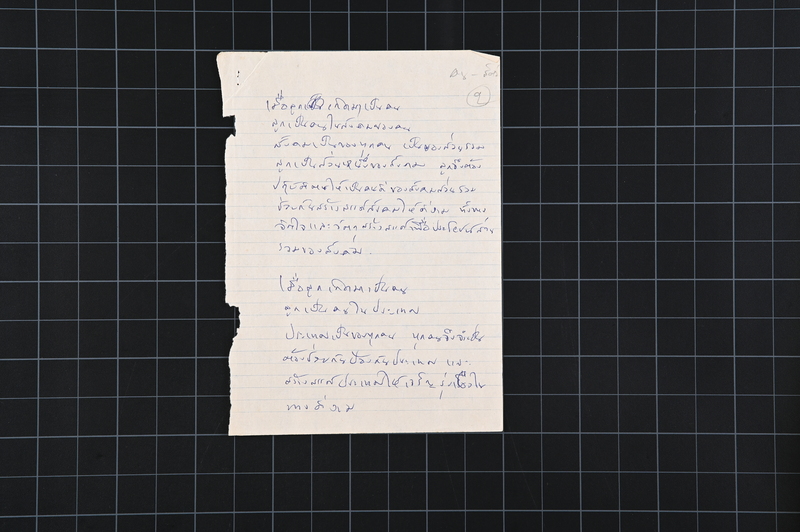 ๙
เมื่อลูกเกิดมาเป็นคน
ลูกเป็นคนในสังคมของคน
สังคมเป็นของทุกคน เป็นของส่วนรวม
ลูกเป็นส่วนหนึ่งของสังคม ลูกจึงต้อง
ปฏิบัติตนให้เป็นคนดีของสังคมส่วนรวม
ช่วยกันสร้างสรรค์สังคมให้ดีงาม ทั้งทาง
จิตใจและวัตถุสร้างสรรค์เพื่อประโยชน์ส่วน
รวมของสังคม.
เมื่อลูกเกิดมาเป็นคน
ลูกเป็นคนในประเทศ
ประเทศเป็นของทุกคน ทุกคนจึงจำเป็น
ต้องช่วยกันป้องกันประเทศ และ
สร้างสรรค์ประเทศให้เจริญรุ่งเรืองใน
ทางดีงาม